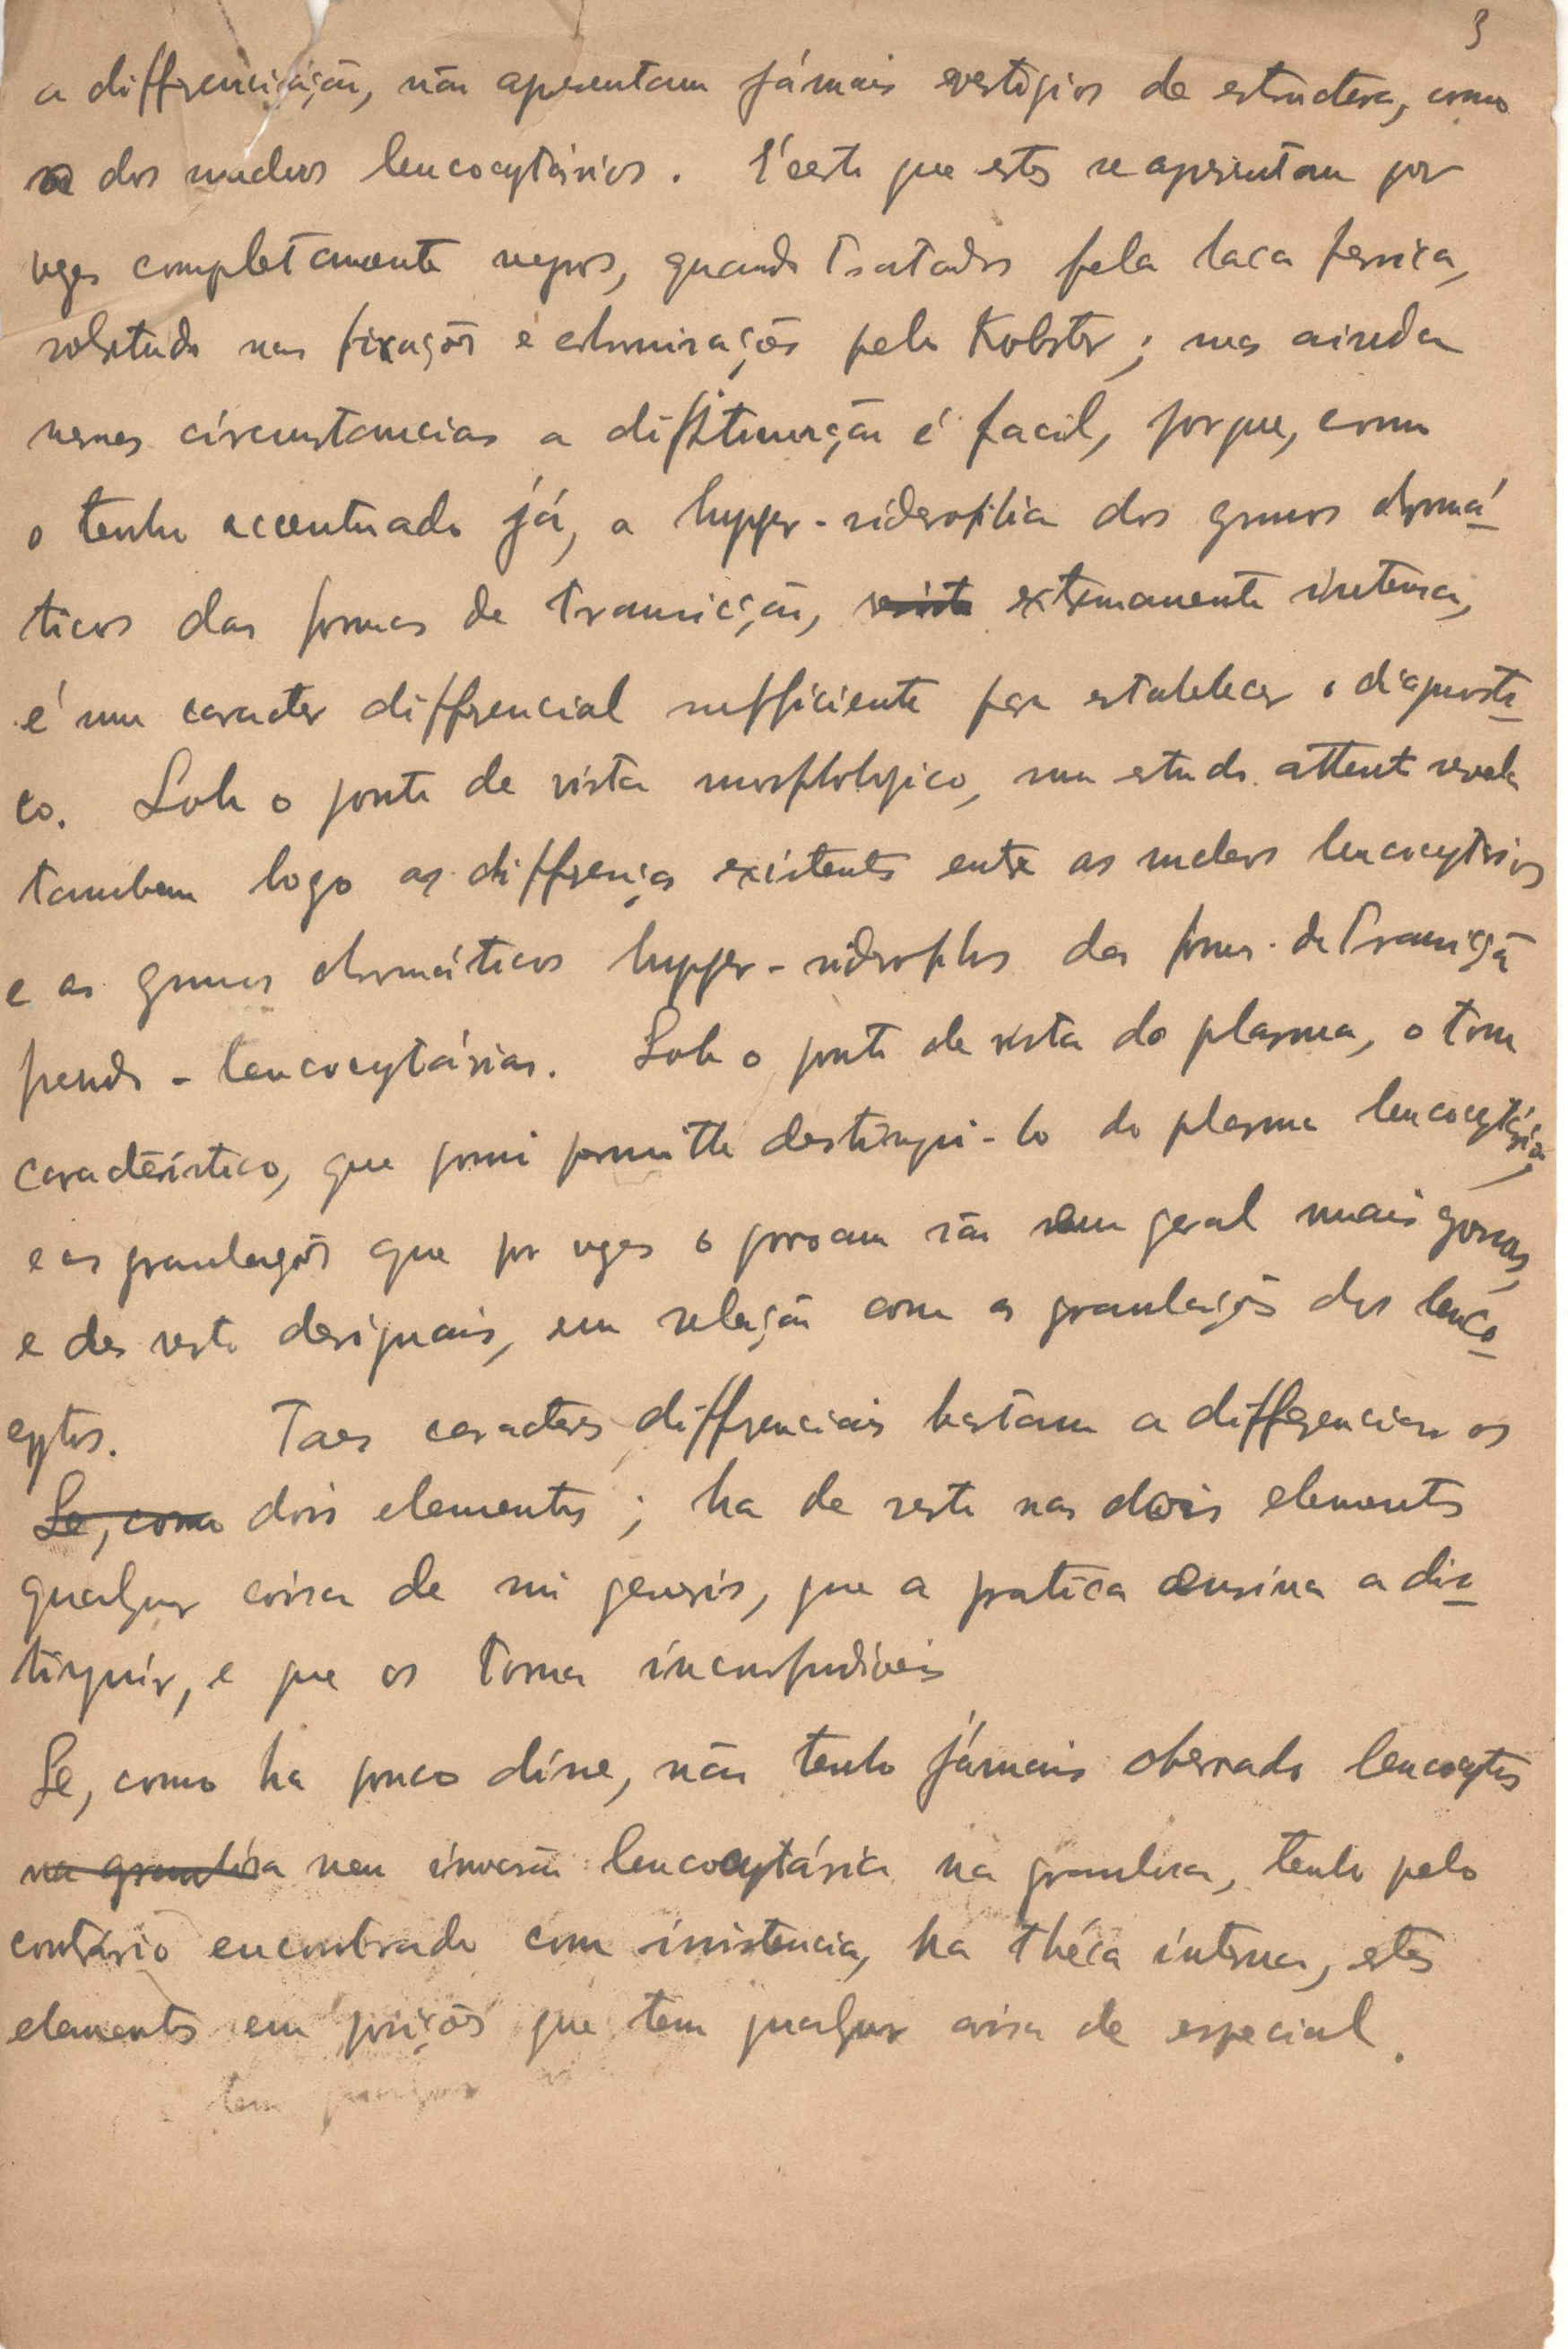 3
a differenciação, não apresentam jámais vestigios de estructura, como
a dos nucleos leucocytários. É certo que estes se apresentam por
vezes completamente negros, quando tratados pela laca ferrica,
sobretudo nas fixações e chromisações pelo Kolster; mas ainda
nessas circumstancias a distincção é facil, porque, como
o tenho accentuado já, a hypper-siderofilia dos grumos chromá-
ticos das formas de transicção, extremamente intensa,
é um caracter differencial sufficiente para estabelecer o diagnosti-
co. Sob o ponto de vista morphologico, um estudo attento revela
tambem logo as differenças existentes entre os nucleos leucocytários
e os grumos chromáticos hypper-siderophilos das formas de transição
pseudo-leucocytárias. Sob o ponto de vista do plasma, o tom
característico, que possui permitte destingui-lo do plasma leucocytário,
e as granulações que por vezes o povoam são em geral mais grossas,
e de resto desiguais, em relação com as granulações dos leuco-
cytos. Taes caracteres differenciais bastam a differenciar os
Se, como dois elementos; ha de resto nos dois elementos
qualquer coisa de sui generis, que a pratica ensina a dis-
tinguir, e que os torna inconfundiveis
Se, como ha pouco disse, não tenho jámais observado leucocytos
na granulosa nem invasão leucocytária na granulosa, tenho pelo
contrário encontrado com insistencia, na théca interna, estes
elementos em posições que tem qualquer coisa de especial.
tem qualquer